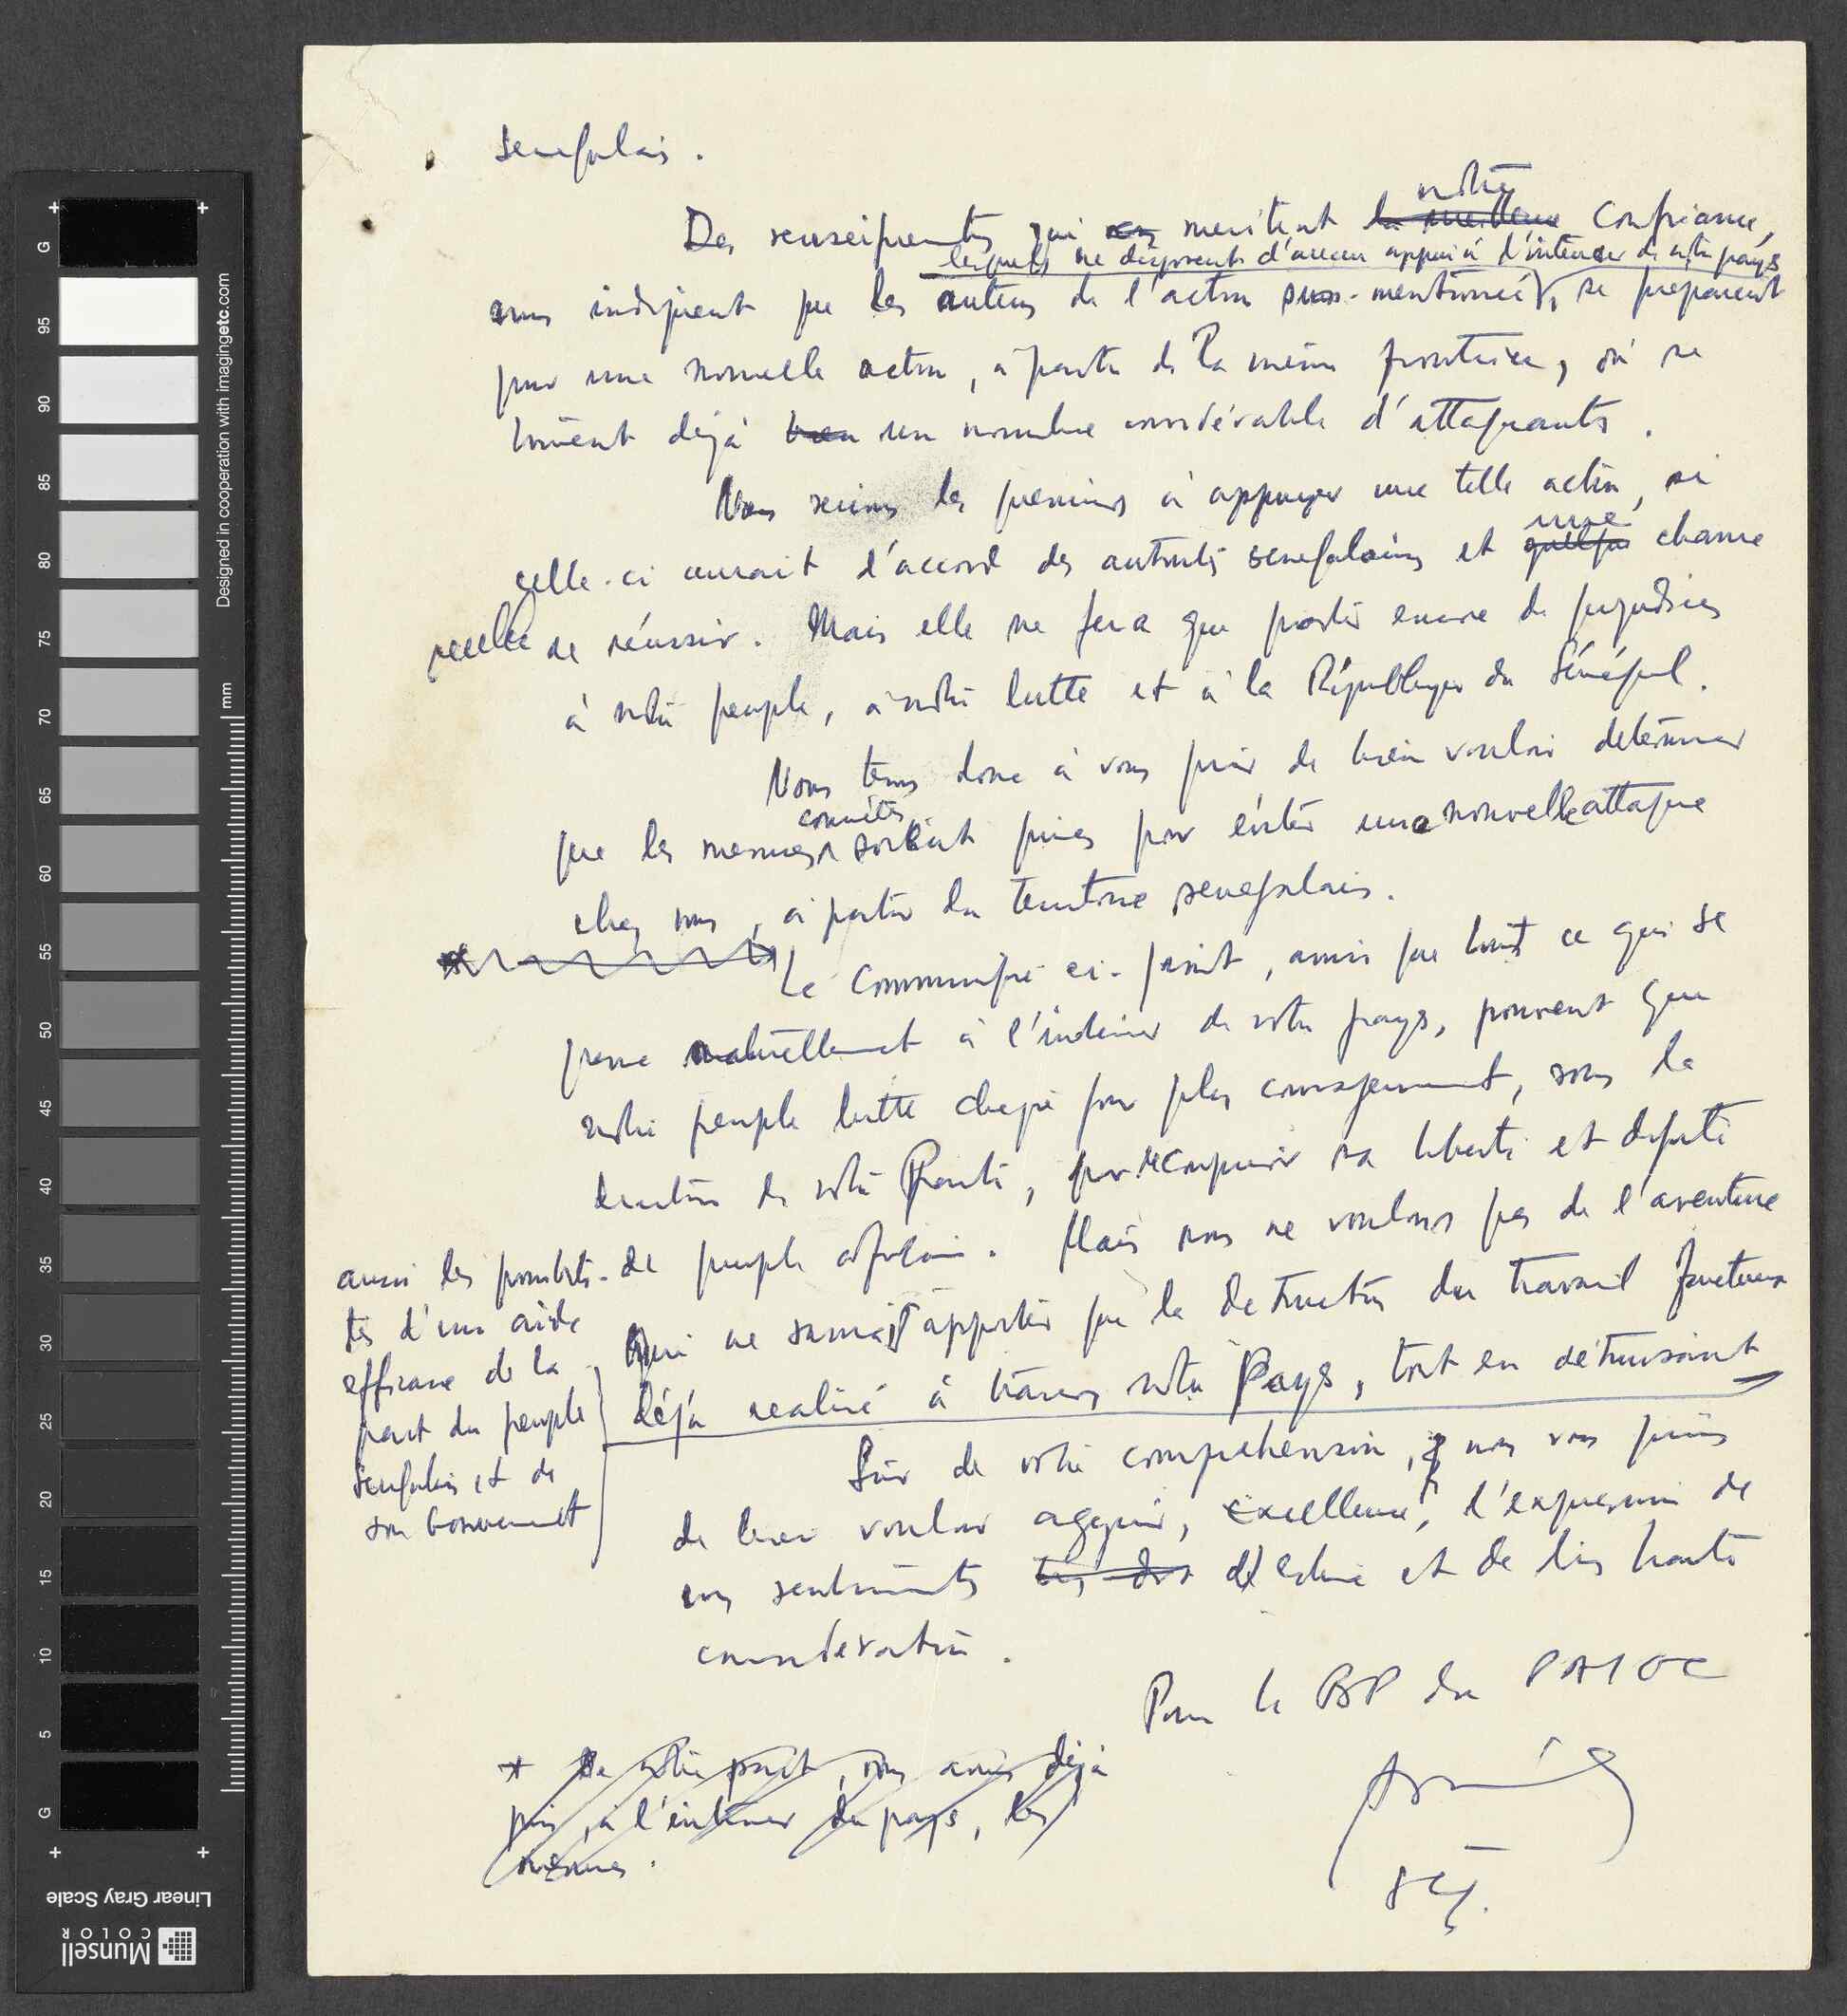 senegalais.
notre
Des renseignements qui meritent la meilleure confiance,
lesquels ne disposent d'aucun appui à l'intérieur de notre pays
nous indiquent que les auteurs de l'action sus-mentionnée, se préparent
pour une nouvelle action, a partir de la même frontière, où se
trouvent déjà bien un nombre considérable d'attaquants.
Nous serions les premiers à appuyer une telle action, si
une
celle-ci aurait l'accord des autorités senegalaises et quelque chance
réelle de réussir. Mais elle ne fera que porter encore de préjudices
à notre peuple, a notre lutte et à la République du Sénégal.
Nous tenons donc à vous prier de bien vouloir déterminer
concrètes
que les mesures soient prises pour éviter une nouvelle attaque
chez nous, à partir du territoire senegalais.
Le communiqué ci-joint, ainsi que tout ce qui se
passe naturellement à l'intérieur de notre pays, prouvent que
notre peuple lutte chaque jour plus courageusement, sous la
direction de notre Parti, pour reconquérir sa liberté et dignité
de peuple africain. Mais nous ne voulons pas de l'aventure
qui ne saurait apporter que la destruction du travail fructueux
déjà realisé à travers notre Pays, tout en détruisant
aussi les possibili-
tés d'une aide
efficace de la
part du peuple
senegalais et de
son Gouvernement
Sûr de votre comprehension, nous vous prions
de bien vouloir agréer, Excellence, l'expression de
nos sentiments d'estime et de très haute
considération.
Pour le BP du PAIGC
SG.
* De notre part, nous avons déjà
pris, à l'intérieur du pays, les
mesures.
Designed in cooperation with imagingetc.com
mm
G 95 90 85 80 75 70 65 60 55 50 45 40 35 30 25 20 15 10 5 G
Linear Gray Scale
Munsell
COLOR